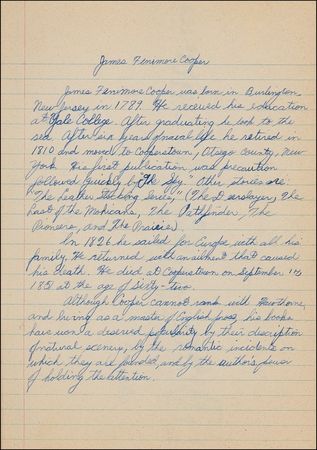 James Fenimore Cooper
James Fenimore Cooper was born in Burlington
New Jersey in 1789. He received his education
at Yale College. After graduating he took to the
sea. After six years of naval life he retired in
1810 and moved to Cooperstown, Otsego County, New
York. His first publication was precaution
followed quickly by The Spy. Other stories are:
"The Leather Stocking Series," (The Deerslayer, The
Last of the Mohicans, The Pathfinder, The
Pioneers, and The Prairie)
In 1826 he sailed for Europe with all his
family. He returned with an ailment that caused
his death. He died at Cooperstown on September
1851 at the age of sixty-two.
Although Cooper cannot rank with Hawthorne,
and Irving as a master of English prose, his books
have won a deserved popularity by their description
of natural scenery, by the romantic incidents on
which they are founded, and by the author's power
of holding the attention.